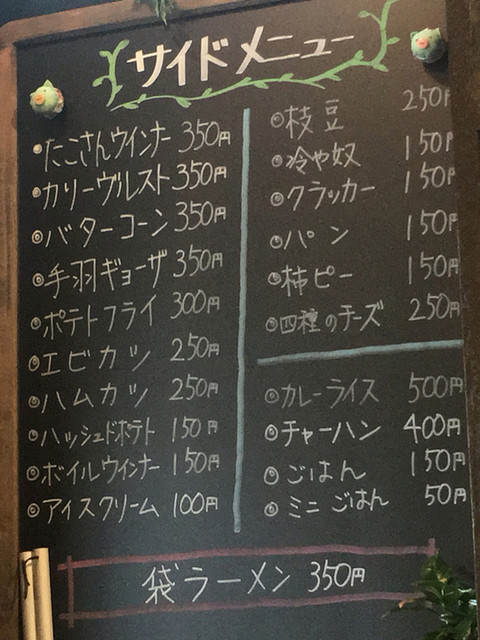 サイドメニュー
たこさんウインナー 350円
カリーヴルスト 350円
バターコーン 350円
手羽ギョーザ 350円
ポテトフライ 300円
エビカツ 250円
ハムカツ 250円
ハッシュドポテト 150円
ボイルウインナー 150円
アイスクリーム 100円
枝豆 250円
冷や奴 150円
クラッカー 150円
パン 150円
柿ピー 150円
四種のチーズ 250円
カレーライス 500円
チャーハン 400円
ごはん 150円
ミニごはん 50円
袋ラーメン 350円